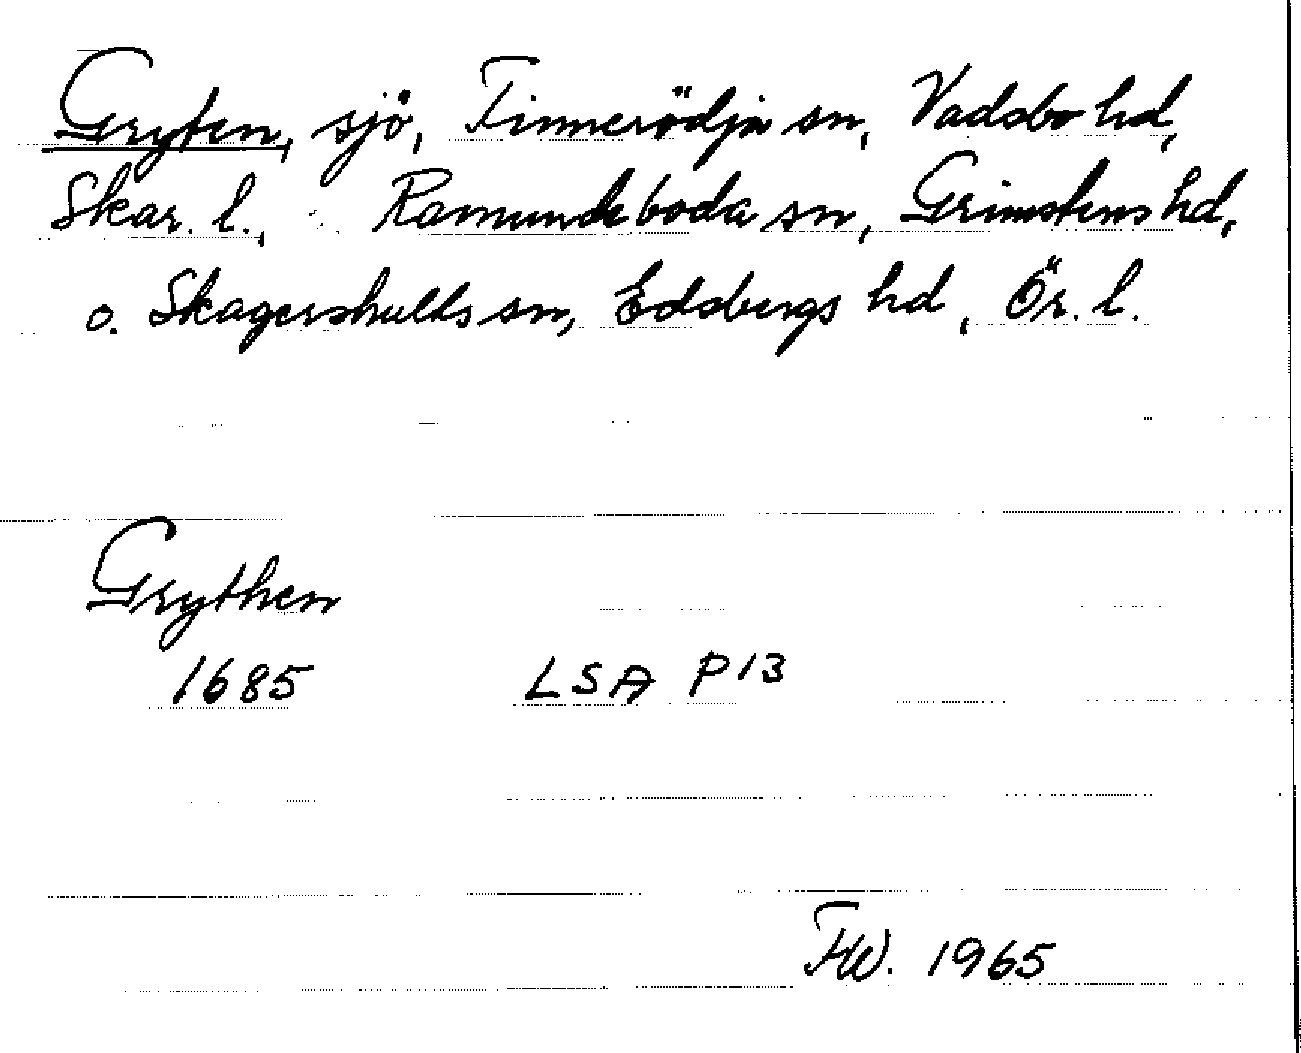 Gryten, sjö, Tinnerödja sn, Vadsbo hd,
Skar. l., Ramundeboda sn, Grimstens hd,
o. Skagershults sn, Edsbergs hd, Ör. l.
Grythen
1685 LSA P13
FW. 1965